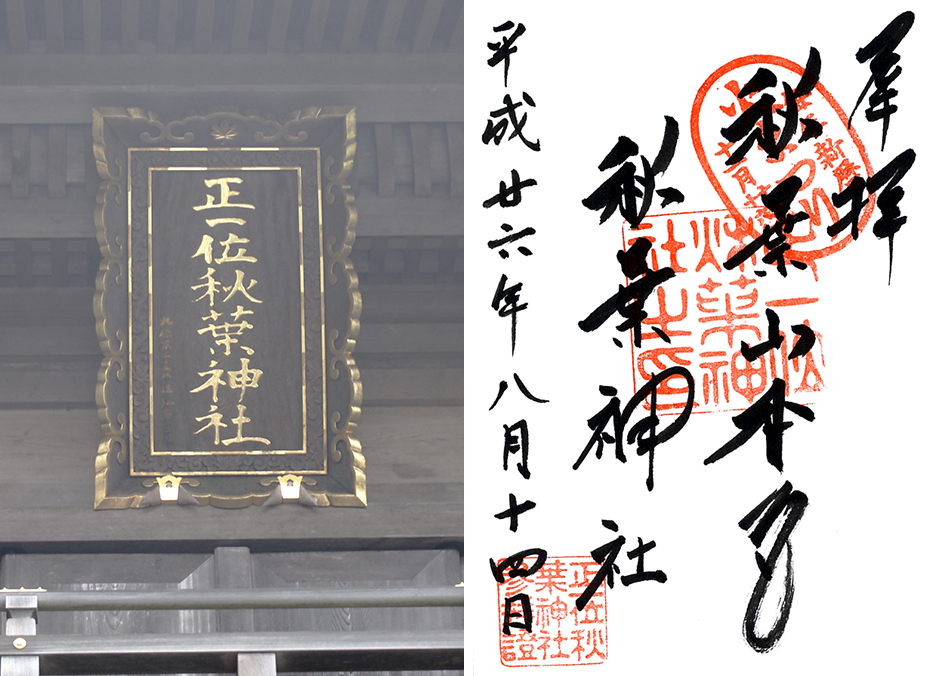 正一位秋葉神社
奉拝
秋葉山本宮
秋葉神社
平成廿六年八月十四日
正一位
秋葉神
社之印
正一位秋
葉神社
參拝證